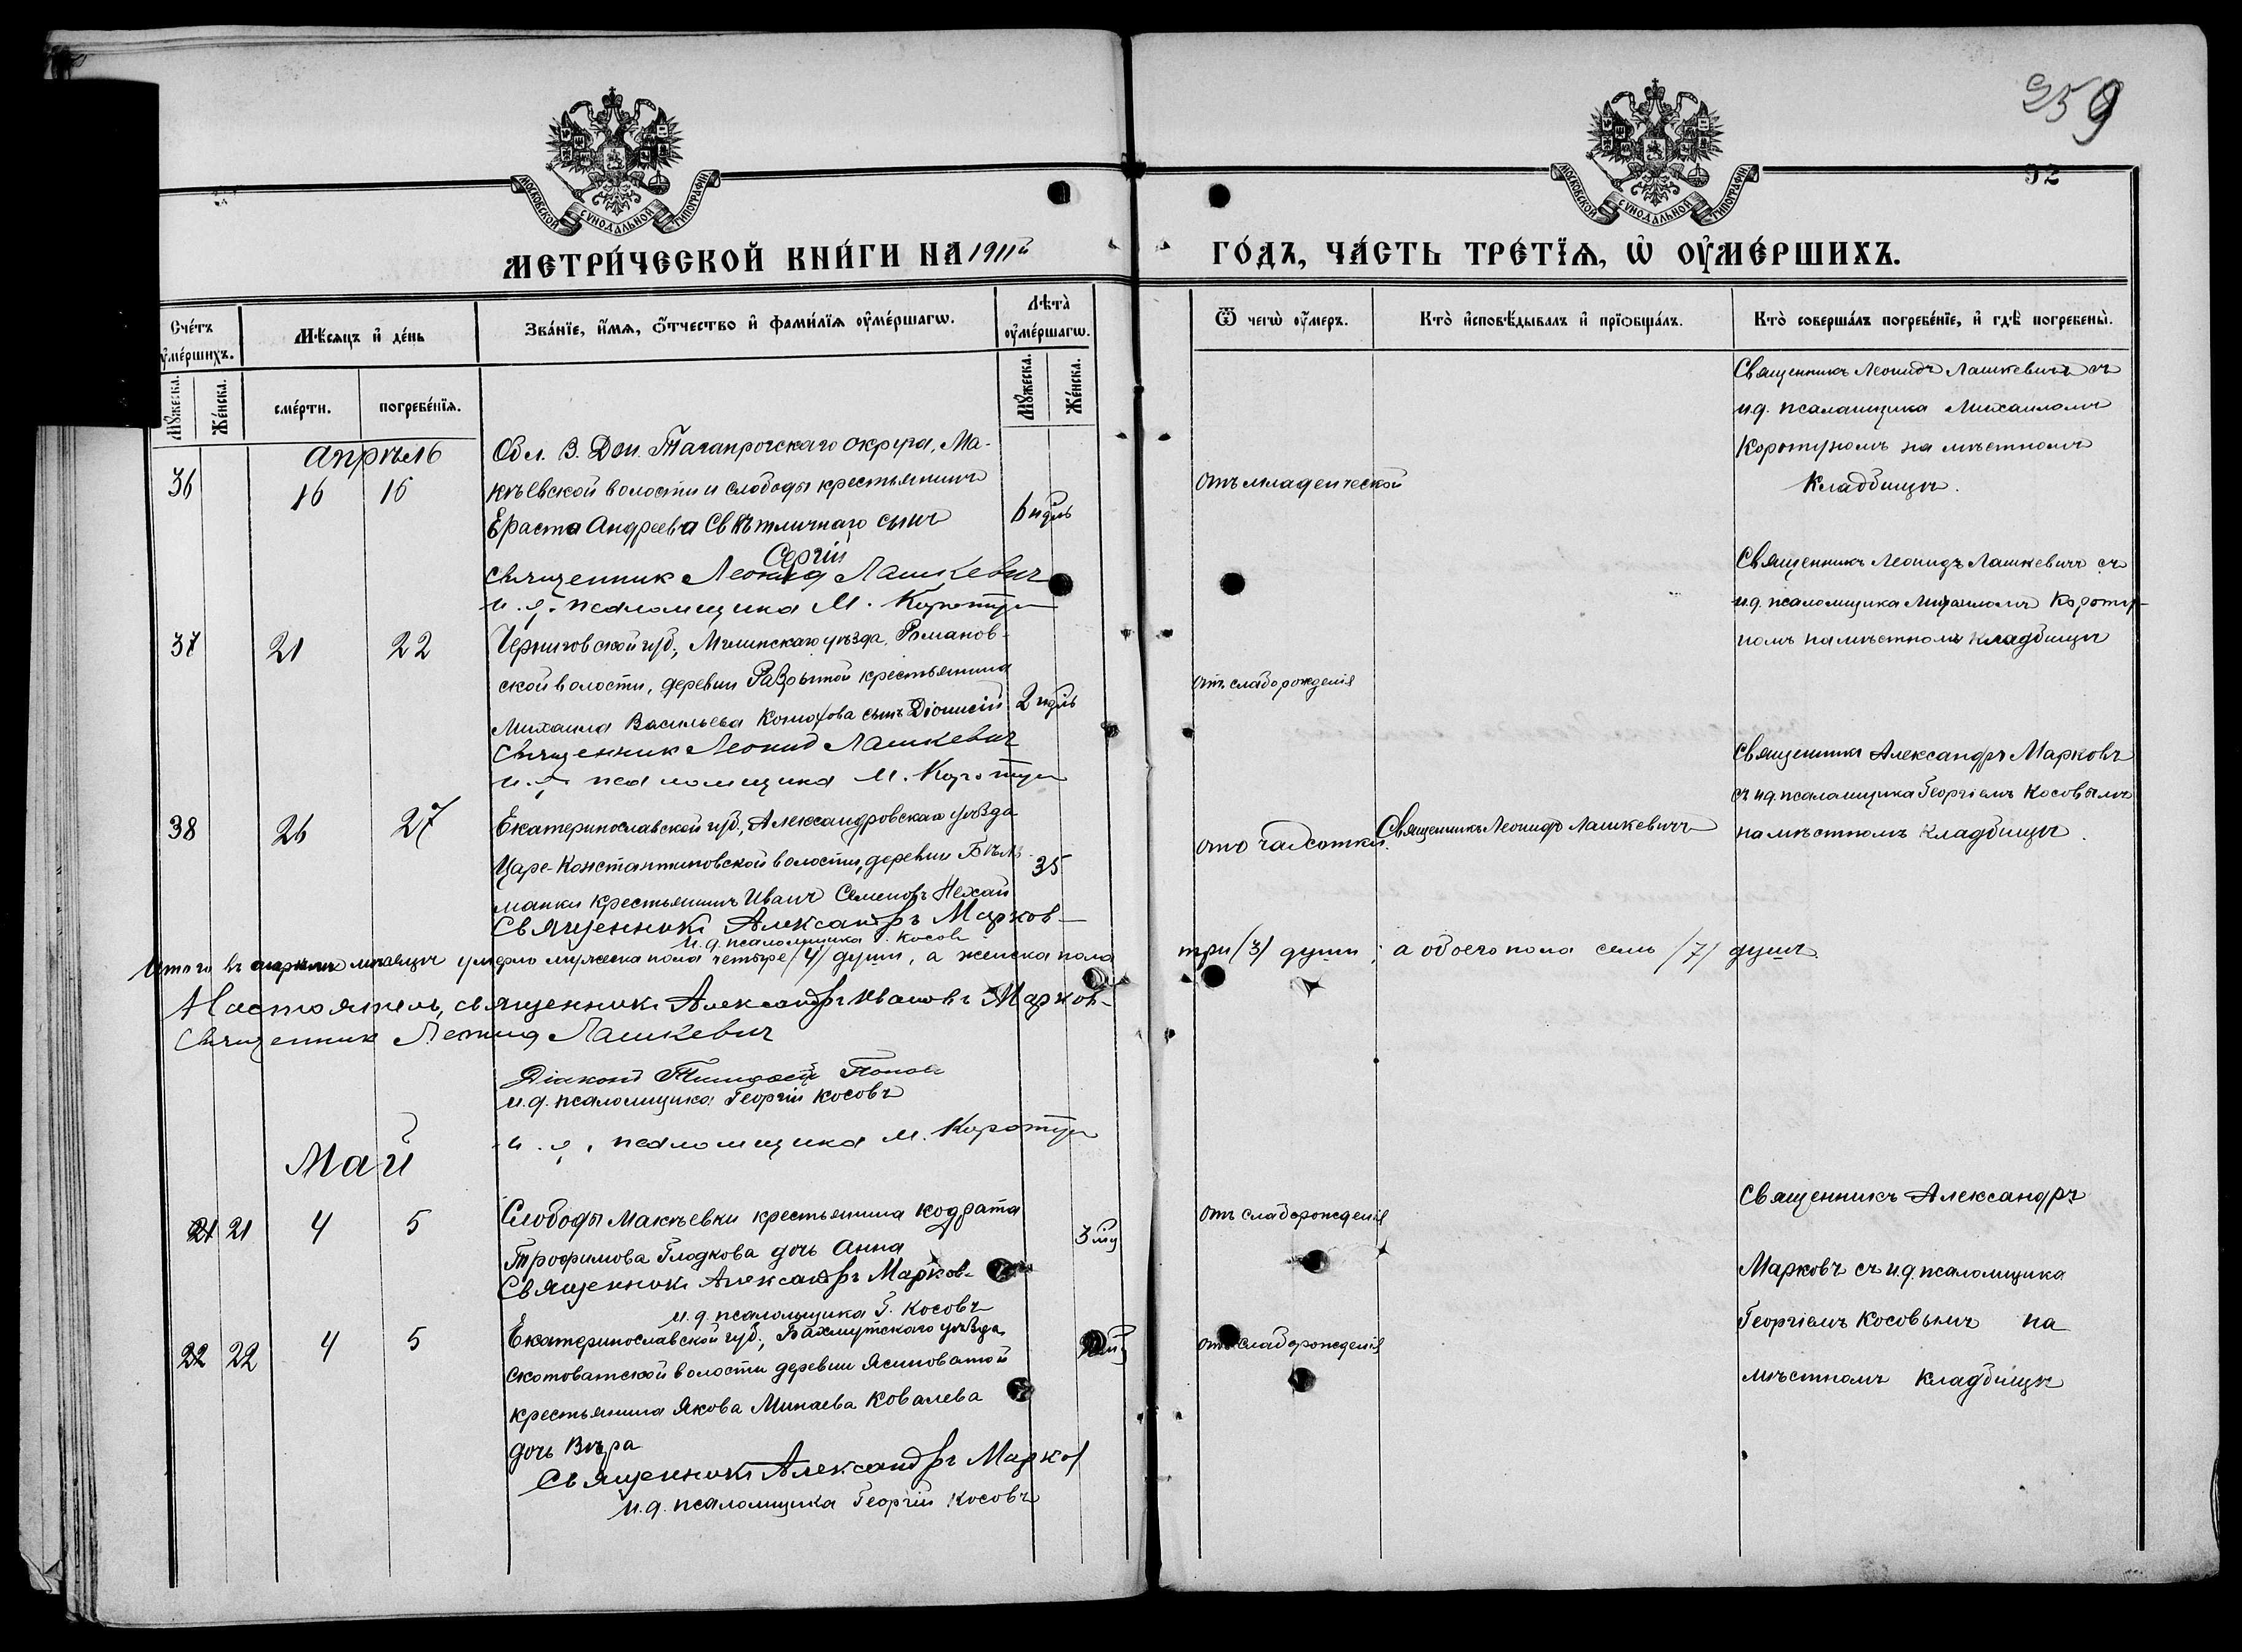 259
92
МОСКОВСКОЙ СУНОДАЛЬНОЙ ТИПОГРАФІИ
МОСКОВСКОЙ СУНОДАЛЬНОЙ ТИПОГРАФІИ
МЕТРИ́ЧЕСКОЙ КНИ́ГИ НА 1911й
ГО́ДЪ, ЧА́СТЬ ТРЕ́ТЇѦ, Ѡ҆ ОУ҆МЕ́РШИХЪ.
Сче́тъ оу҆ме́ршихъ.
Мꙋ́жеска.
Же́нска.
Мѣ́сяцъ и҆ де́нь
сме́рти.
погребе́нїѧ.
Зва́нїе, и҆́мѧ, ѻ҆́тчество и҆ фами́лїѧ оу҆ме́ршагѡ.
Лѣ́та̀ оу҆ме́ршагѡ.
Мꙋ́жеска.
Же́нска.
Ѿ чегѡ̀ оу҆́меръ.
Кто̀ и҆сповѣ́дывалъ и҆ прїѡбща́лъ.
Кто̀ соверша́лъ погребе́нїе, и҆ гдѣ̀ погребены̀.
Апрѣль
36
16 16
Обл. В. Дон. Таганрогскаго округа, Ма-
кѣевской волости и слободы крестьянина
Ераста Андреева Свѣтличнаго сынъ
Сергій
6 ндль
отъ младенческой
Священникъ Леонидъ Лашкевичъ съ
и.д. псаломщика Михаиломъ
Коротуномъ на мѣстномъ
кладбищѣ.
Священник Леонид Лашкевич
и.д. псаломщика М. Коротун
37
21 22
Черниговской губ., Мглинскаго уѣзда, Романов-
ской волости, деревни Разрытой крестьянина
Михаила Васильева Конохова сынъ Діонисій
2 ндль
отъ слаборожденія
Священникъ Леонидъ Лашкевичъ съ
и.д. псаломщика Михаиломъ Короту-
номъ на мѣстномъ кладбищѣ
Священник Леонид Лашкевич
и.д. псаломщика М. Коротун
38
26 27
Екатеринославской губ., Александровскаго уѣзда
Царе-Константиновской волости, деревни Бѣль-
манки крестьянинъ Иванъ Семеновъ Нехай
35
отъ чахотки.
Священникъ Леонидъ Лашкевичъ
Священникъ Александръ Марковъ
съ и.д. псаломщика Георгіемъ Косовымъ
на мѣстномъ кладбищѣ.
Священникъ Александръ Марков
и.д. псаломщика Г. Косовъ
Итого въ апрѣлѣ мѣсяцѣ умерло мужеска пола четыре /4/ души, а женска пола три /3/ души; а обоего пола семь /7/ душъ.
Настоятель, священникъ Александръ Ивановъ Марков
Священник Леонид Лашкевич
Діаконъ Тимофей Попов
и.д. псаломщика Георгій Косовъ
и.д. псаломщика М. Коротун
Май
21 21
4 5
Слободы Макѣевки крестьянина Кодрата
Трофимова Гладкова дочь Анна
3 мц
отъ слаборожденія
Священникъ Александръ
Марковъ съ и.д. псаломщика
Георгіемъ Косовымъ на
мѣстномъ кладбищѣ
Священникъ Александръ Марков
и.д. псаломщика Г. Косовъ
22 22
4 5
Екатеринославской губ., Бахмутскаго уѣзда,
Скотоватской волости деревни Ясиноватой
крестьянина Якова Минаева Ковалева
дочь Вѣра
отъ слаборожденія
Священникъ Александръ Марков
и.д. псаломщика Георгій Косовъ